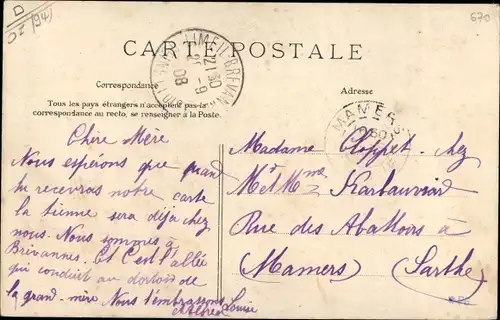 D
OZ (94)
670
CARTE POSTALE
LIMEIL-BREVANNES
21 30
9
08
Correspondance
Tous les pays étrangers n'acceptent pas la
correspondance au recto, se renseigner à la Poste.
Adresse
MAMERS
Chère Mère
Nous espérons que quand
tu recevras notre carte
la tienne sera déja chez
nous. Nous sommes à
Brévannes. Et C'est l'allée
qui conduit au dortoir de
la grand-mère. Nous t'embrassons
Louise
Madame Cloppet. chez
Mr et Mme
Rue des Abattoirs à
Mamers (Sarthe)